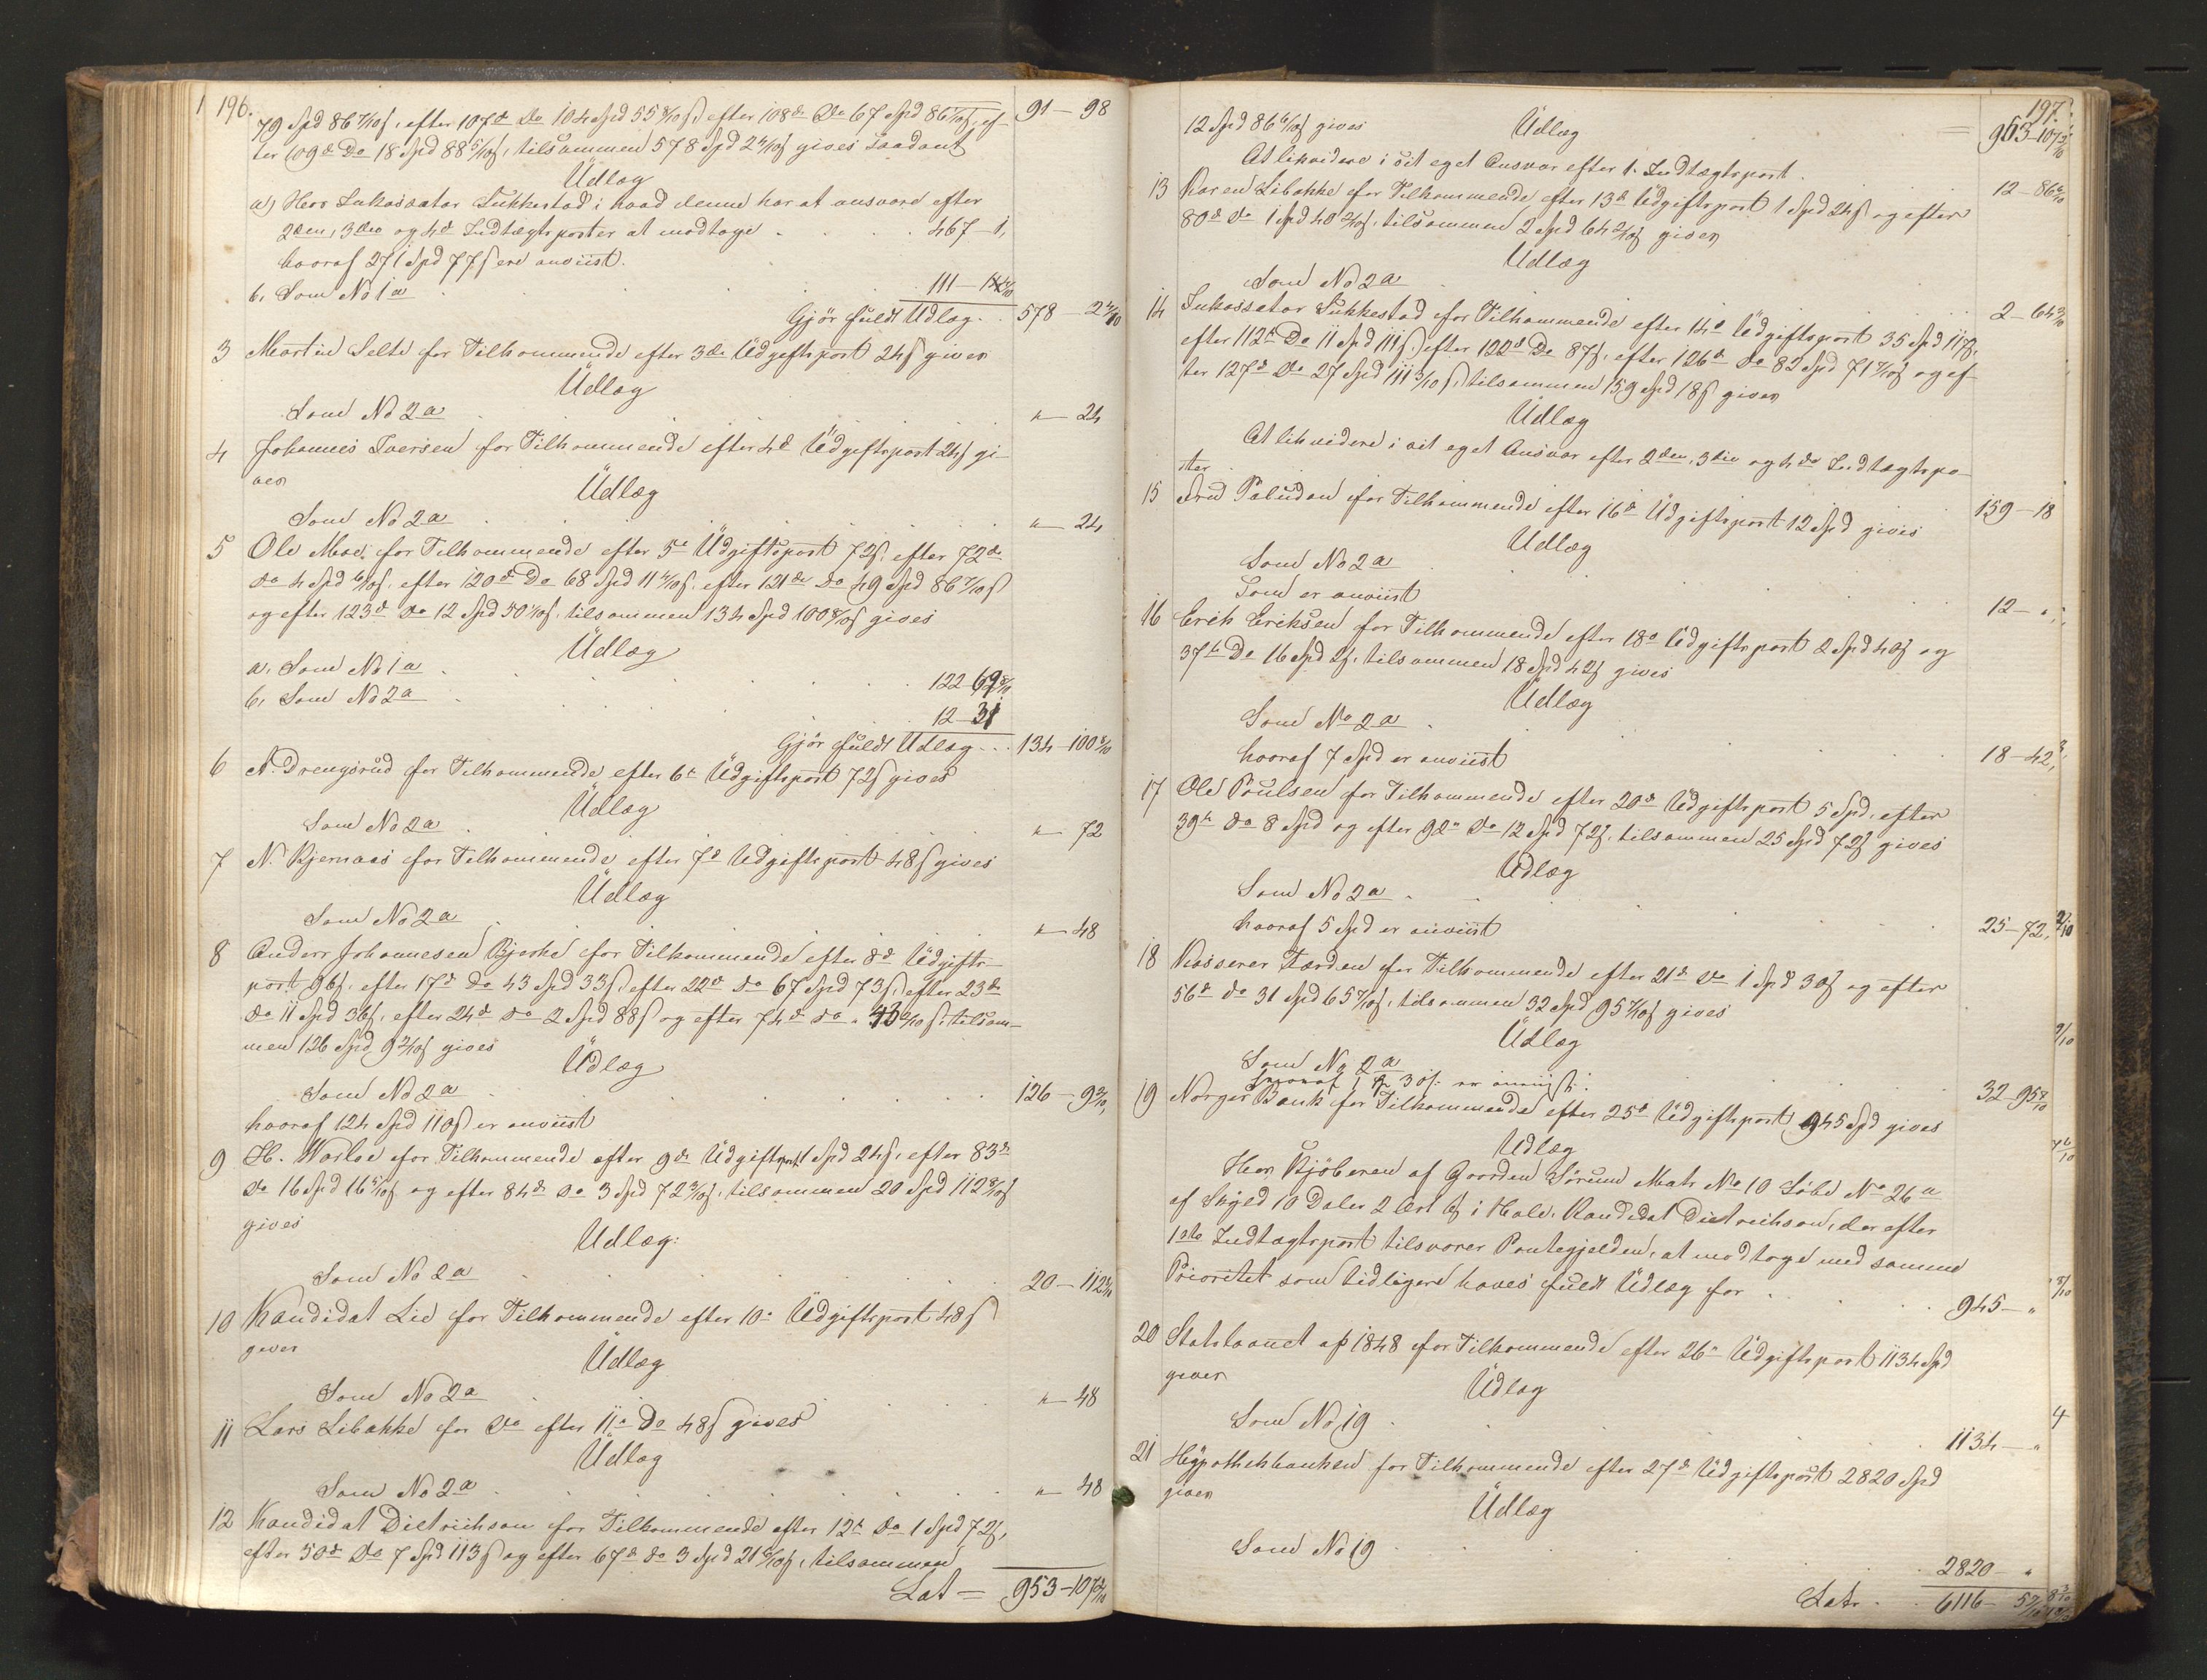 196.
79 Spd 86 7/10 ß, efter 107d Do 104 Spd 55 8/10 ß, efter 108de Do 67 Spd 86 1/10 ß, ef- 91 – 98
ter 109de Do 18 Spd 88 5/10 ß, tilsammen 578 Spd 2 4/10 ß gives saadant
Udlæg
a) Hos Inkassator Sukkestad i hvad denne har at ansvare efter
2den, 3die og 4de Indtægtsposter at modtage . . . 467 – 1,
hvoraf 271 Spd 77 ß ere anviist.
b, Som No 1 a . . . 111 –
Gjør fuldt Udlæg . . 578 – 2 4/10
3 Martin Selte for Tilkommende efter 3de Udgiftspost 24 ß gives
Udlæg
Som No 2 a . . . „ – 24
4 Johannes Iversen for Tilkommende efter 4de Udgiftspost 24 ß gi-
ves
Udlæg
Som No 2 a . . . „ – 24
5 Ole Moe, for Tilkommende efter 5te Udgiftspost 72 ß, efter 72de
Do 4 Spd 6/10 ß, efter 120de Do 68 Spd 11 4/10 ß, efter 121de Do 49 Spd 86 7/10 ß
og efter 123de Do 12 Spd 50 1/10 ß, tilsammen 134 Spd 100 8/10 ß gives
Udlæg
a, Som No 1 a . . . 122 – 69 8/10
b, Som No 2 a . . . 12 – 31
Gjør fuldt Udlæg . . . 134 – 100 8/10
6 N. Drengsrud for Tilkommende efter 6te Udgiftspost 72 ß gives
Udlæg
Som No 2 a . . . „ – 72
7 N. Bjernaas for Tilkommende efter 7de Udgiftspost 48 ß gives
Udlæg
Som No 2 a . . . „ – 48
8 Anders Johannesen Bjerke for Tilkommende efter 8de Udgifts-
post 96 ß, efter 17de Do 43 Spd 33 ß, efter 22de Do 67 Spd 73 ß, efter 23de
Do 11 Spd 36 ß, efter 24de Do 2 Spd 88 ß og efter 74de Do „ 43 2/10 ß, tilsam-
men 126 Spd 9 2/10 ß gives
Udlæg
Som No 2 a . . . 126 – 9 2/10,
hvoraf 124 Spd 110 ß er anviist
9 H. Warloe for Tilkommende efter 9de Udgiftspost 1 Spd 24 ß, efter 83de
Do 16 Spd 16 5/10 ß og efter 84de Do 3 Spd 72 3/10 ß, tilsammen 20 Spd 112 8/10 ß
gives
Udlæg:
Som No 2 a . . . 20 – 112 8/10
10 Kandidat Lie for Tilkommende efter 10de Udgiftspost 48 ß
gives
Udlæg
Som No 2 a . . . „ – 48
11 Lars Libakke for Do efter 11te Do 48 ß gives
Udlæg
Som No 2 a . . . „ – 48
12 Kandidat Dietrichson for Tilkommende efter 12te Do 1 Spd 72 ß,
efter 50de Do 7 Spd 113 ß og efter 67de Do 3 Spd 21 6/10 ß, tilsammen
Lat = 953 – 107 2/10
197.
12 Spd 86 6/10 ß gives = 953 – 107 2/10
Udlæg
At likvidere i sit eget Ansvar efter 1. Indtægtspost . . . 12 – 86 6/10
13 Karen Libakke for Tilkommende efter 13de Udgiftspost 1 Spd 24 ß og efter
80de Do 1 Spd 40 2/10 ß, tilsammen 2 Spd 64 2/10 ß gives
Udlæg
Som No 2 a . . . 2 – 64 2/10
14 Inkassator Sukkestad for Tilkommende efter 14de Udgiftspost 35 Spd 117 ß,
efter 112te Do 11 Spd 111 ß, efter 122de Do 87 ß, efter 126de Do 82 Spd 71 7/10 ß og ef-
ter 127de Do 27 Spd 111 3/10 ß, tilsammen 159 Spd 18 ß gives
Udlæg
At likvidere i sit eget Ansvar efter 2den, 3die og 4de Indtægtspo-
ster . . . 159 – 18
15 Paludan for Tilkommende efter 16de Udgiftspost 12 Spd gives
Udlæg
Som No 2 a . . . 12 – „
Som er anviist
16 Erik Eriksen for Tilkommende efter 18de Udgiftspost 2 Spd 40 ß og
37te Do 16 Spd 2 ß, tilsammen 18 Spd 42 ß gives
Udlæg
Som No 2 a . . . 18 – 42,
hvoraf 7 Spd er anviist
17 Ole Poulsen for Tilkommende efter 20de Udgiftspost 5 Spd, efter
39te Do 8 Spd og efter 92de Do 12 Spd 72 ß, tilsammen 25 Spd 72 ß gives
Udlæg
Som No 2 a . . . 25 – 72,
hvoraf 5 Spd er anviist
18 Kasserer Færden for Tilkommende efter 21de Do 1 Spd 30 ß og efter
56de Do 31 Spd 65 7/10 ß, tilsammen 32 Spd 95 7/10 ß gives
Udlæg
Som No 2 a . . . 32 – 95 7/10
hvoraf 1 Sp 30 ß er anviist.
19 Norges Bank for Tilkommende efter 25de Udgiftspost 945 Spd gives
Udlæg
Hos Kjøberen af Gaarden Sørum Matr No 10 Løbe No 26 a
af Skyld 10 Daler 2 Ort ß i Hole, Kandidat Dietrichson, der efter
1ste Indtægtspost tilsvarer Pantegjelden, at modtage med samme
Prioritet som tidligere haves fuldt Udlæg for . . . 945 – „
20 Statslaanet af 1848 for Tilkommende efter 26de Udgiftspost 1134 Spd
gives
Udlæg
Som No 19 . . . 1134 – „
21 Hypothekbanken for Tilkommende efter 27de Udgiftspost 2820 Spd
gives
Udlæg
Som No 19 . . . 2820 – „
Lat. . . 6116 – 5 7/10